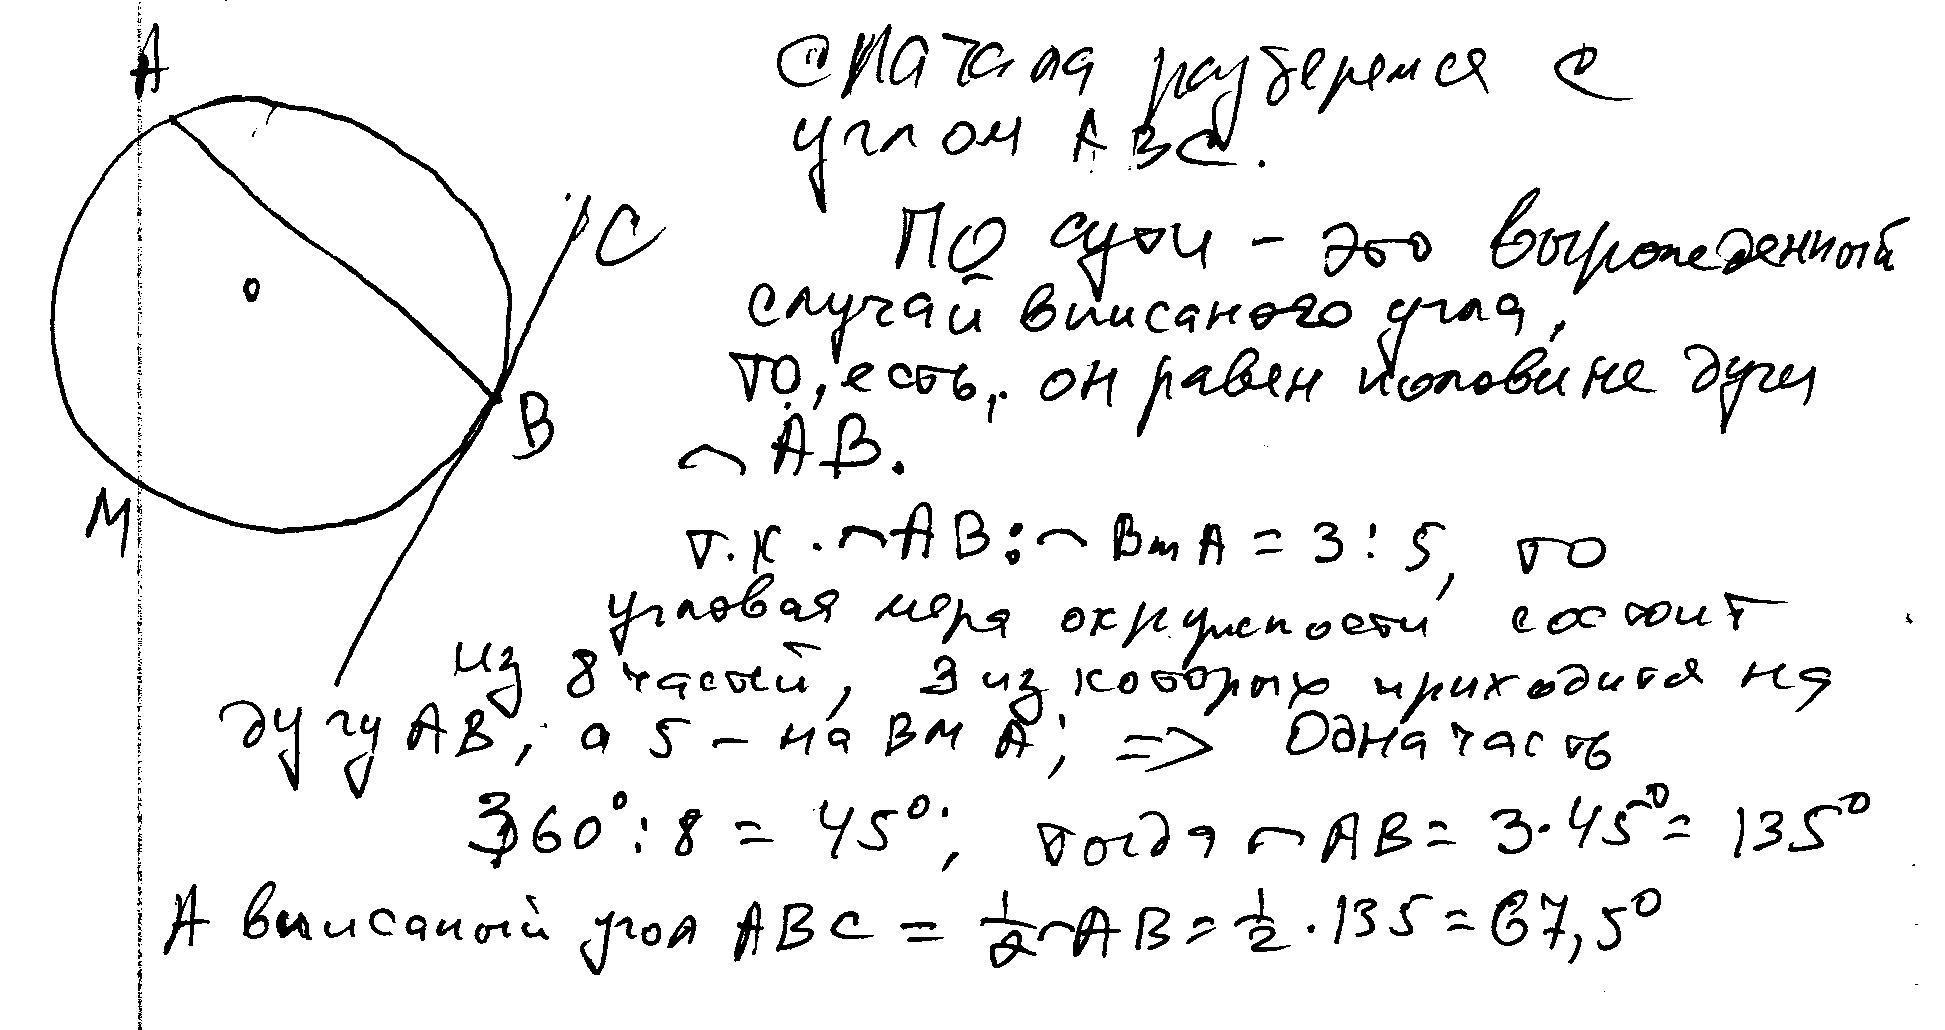 A
сначала разберемся с
углом ABC.
C
По сути - это вырожденный
случай вписаного угла,
O
то, есть, он равен половине дуги
B
◠ AB.
M
т.к. ◠AB:◠BmA = 3:5, то
угловая мера окружности состоит
из 8 частей, 3 из которых приходится на
дугу AB, а 5 - на BмA; => Одна часть
360°:8 = 45°; тогда ◠AB = 3·45° = 135°
А вписаный угол ABC = 1/2◠AB = 1/2·135 = 67,5°